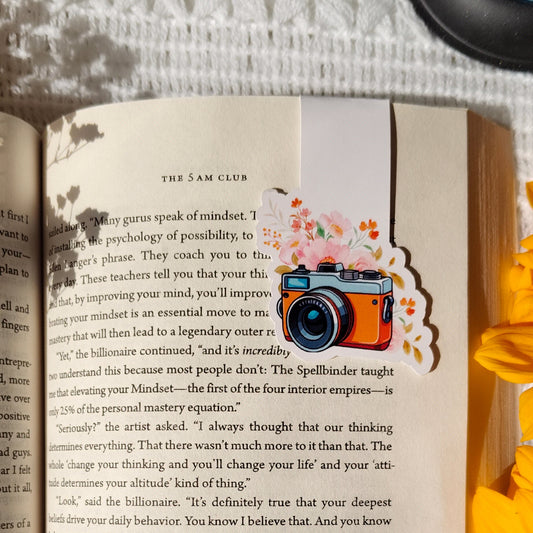 t first I
want to
your—
plan to
ell and
fingers
entrepre-
d, more
ve over
positive
ny and
ad guys.
ar I felt
out it all,
ers of a
THE 5 AM CLUB
sailed along. "Many gurus speak of mindset. T
of installing the psychology of possibility, to
Langer's phrase. They coach you to thin
every day. These teachers tell you that your thin
and that, by improving your mind, you'll improve
brating your mindset is an essential move to ma
mastery that will then lead to a legendary outer re
"Yet," the billionaire continued, "and it's incredibly
two understand this because most people don't: The Spellbinder taught
me that elevating your Mindset—the first of the four interior empires—is
only 25% of the personal mastery equation."
"Seriously?" the artist asked. "I always thought that our thinking
determines everything. That there wasn't much more to it than that. The
whole 'change your thinking and you'll change your life' and your 'atti-
tude determines your altitude' kind of thing."
"Look," said the billionaire. "It's definitely true that your deepest
beliefs drive your daily behavior. You know I believe that. And you know